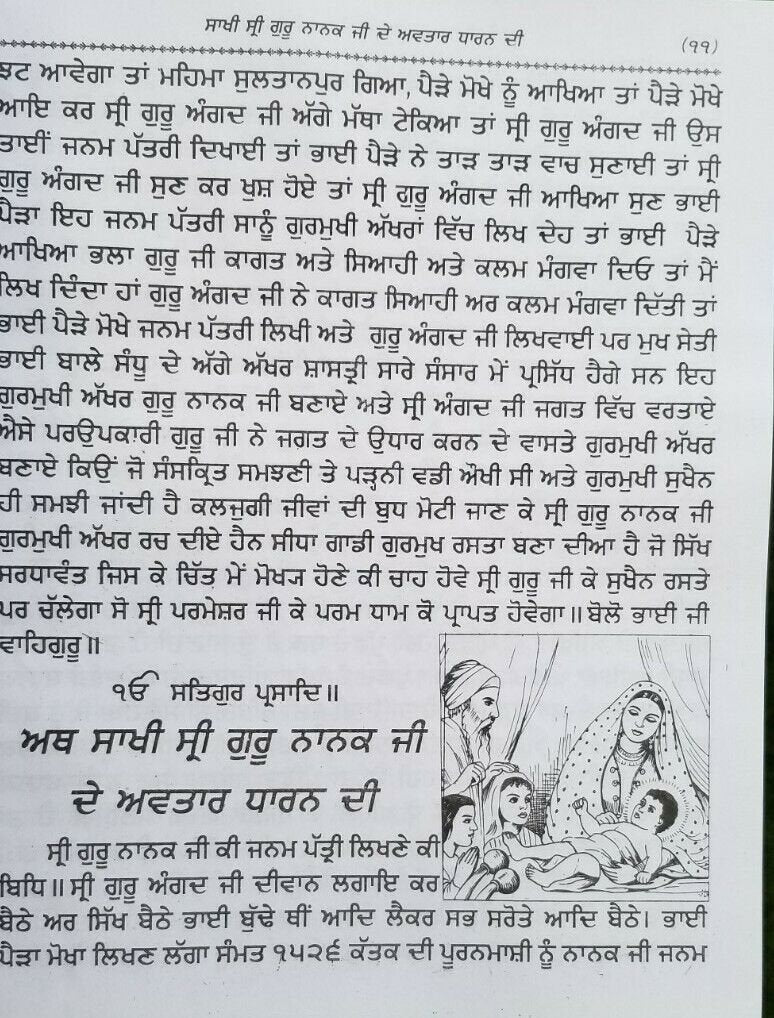 ਸਾਖੀ ਸ੍ਰੀ ਗੁਰੂ ਨਾਨਕ ਜੀ ਦੇ ਅਵਤਾਰ ਧਾਰਨ ਦੀ
(੧੧)
ਝਟ ਆਵੇਗਾ ਤਾਂ ਮਹਿਮਾ ਸੁਲਤਾਨਪੁਰ ਗਿਆ, ਪੈੜੇ ਮੋਖੇ ਨੂੰ ਆਖਿਆ ਤਾਂ ਪੈੜੇ ਮੋਖੇ
ਆਇ ਕਰ ਸ੍ਰੀ ਗੁਰੂ ਅੰਗਦ ਜੀ ਅੱਗੇ ਮੱਥਾ ਟੇਕਿਆ ਤਾਂ ਸ੍ਰੀ ਗੁਰੂ ਅੰਗਦ ਜੀ ਉਸ
ਤਾਈਂ ਜਨਮ ਪੱਤਰੀ ਦਿਖਾਈ ਤਾਂ ਭਾਈ ਪੈੜੇ ਨੇ ਤਾੜ ਤਾੜ ਵਾਚ ਸੁਣਾਈ ਤਾਂ ਸ੍ਰੀ
ਗੁਰੂ ਅੰਗਦ ਜੀ ਸੁਣ ਕਰ ਖੁਸ਼ ਹੋਏ ਤਾਂ ਸ੍ਰੀ ਗੁਰੂ ਅੰਗਦ ਜੀ ਆਖਿਆ ਸੁਣ ਭਾਈ
ਪੈੜਾ ਇਹ ਜਨਮ ਪੱਤਰੀ ਸਾਨੂੰ ਗੁਰਮੁਖੀ ਅੱਖਰਾਂ ਵਿੱਚ ਲਿਖ ਦੇਹ ਤਾਂ ਭਾਈ ਪੈੜੇ
ਆਖਿਆ ਭਲਾ ਗੁਰੂ ਜੀ ਕਾਗਤ ਅਤੇ ਸਿਆਹੀ ਅਤੇ ਕਲਮ ਮੰਗਵਾ ਦਿਓ ਤਾਂ ਮੈਂ
ਲਿਖ ਦਿੰਦਾ ਹਾਂ ਗੁਰੂ ਅੰਗਦ ਜੀ ਨੇ ਕਾਗਤ ਸਿਆਹੀ ਅਰ ਕਲਮ ਮੰਗਵਾ ਦਿੱਤੀ ਤਾਂ
ਭਾਈ ਪੈੜੇ ਮੋਖੇ ਜਨਮ ਪੱਤਰੀ ਲਿਖੀ ਅਤੇ ਗੁਰੂ ਅੰਗਦ ਜੀ ਲਿਖਵਾਈ ਪਰ ਮੁਖ ਸੇਤੀ
ਭਾਈ ਬਾਲੇ ਸੰਧੂ ਦੇ ਅੱਗੇ ਅੱਖਰ ਸ਼ਾਸਤ੍ਰੀ ਸਾਰੇ ਸੰਸਾਰ ਮੇਂ ਪ੍ਰਸਿੱਧ ਹੈਗੇ ਸਨ ਇਹ
ਗੁਰਮੁਖੀ ਅੱਖਰ ਗੁਰੂ ਨਾਨਕ ਜੀ ਬਣਾਏ ਅਤੇ ਸ੍ਰੀ ਅੰਗਦ ਜੀ ਜਗਤ ਵਿੱਚ ਵਰਤਾਏ
ਐਸੇ ਪਰਉਪਕਾਰੀ ਗੁਰੂ ਜੀ ਨੇ ਜਗਤ ਦੇ ਉਧਾਰ ਕਰਨ ਦੇ ਵਾਸਤੇ ਗੁਰਮੁਖੀ ਅੱਖਰ
ਬਣਾਏ ਕਿਉਂ ਜੋ ਸੰਸਕ੍ਰਿਤ ਸਮਝਣੀ ਤੇ ਪੜ੍ਹਨੀ ਵਡੀ ਔਖੀ ਸੀ ਅਤੇ ਗੁਰਮੁਖੀ ਸੁਖੈਨ
ਹੀ ਸਮਝੀ ਜਾਂਦੀ ਹੈ ਕਲਜੁਗੀ ਜੀਵਾਂ ਦੀ ਬੁਧ ਮੋਟੀ ਜਾਣ ਕੇ ਸ੍ਰੀ ਗੁਰੂ ਨਾਨਕ ਜੀ
ਗੁਰਮੁਖੀ ਅੱਖਰ ਰਚ ਦੀਏ ਹੈਨ ਸੀਧਾ ਗਾਡੀ ਗੁਰਮੁਖ ਰਸਤਾ ਬਣਾ ਦੀਆ ਹੈ ਜੋ ਸਿੱਖ
ਸਰਧਾਵੰਤ ਜਿਸ ਕੇ ਚਿੱਤ ਮੇਂ ਮੋਖ੍ਯ ਹੋਣੇ ਕੀ ਚਾਹ ਹੋਵੇ ਸ੍ਰੀ ਗੁਰੂ ਜੀ ਕੇ ਸੁਖੈਨ ਰਸਤੇ
ਪਰ ਚੱਲੇਗਾ ਸੋ ਸ੍ਰੀ ਪਰਮੇਸ਼ਰ ਜੀ ਕੇ ਪਰਮ ਧਾਮ ਕੋ ਪ੍ਰਾਪਤ ਹੋਵੇਗਾ॥ ਬੋਲੋ ਭਾਈ ਜੀ
ਵਾਹਿਗੁਰੂ॥
ੴ ਸਤਿਗੁਰ ਪ੍ਰਸਾਦਿ॥
ਅਥ ਸਾਖੀ ਸ੍ਰੀ ਗੁਰੂ ਨਾਨਕ ਜੀ
ਦੇ ਅਵਤਾਰ ਧਾਰਨ ਦੀ
ਸ੍ਰੀ ਗੁਰੂ ਨਾਨਕ ਜੀ ਕੀ ਜਨਮ ਪੱਤ੍ਰੀ ਲਿਖਣੇ ਕੀ
ਬਿਧਿ॥ ਸ੍ਰੀ ਗੁਰੂ ਅੰਗਦ ਜੀ ਦੀਵਾਨ ਲਗਾਇ ਕਰ
ਬੈਠੇ ਅਰ ਸਿੱਖ ਬੈਠੇ ਭਾਈ ਬੁੱਢੇ ਥੀਂ ਆਦਿ ਲੈਕਰ ਸਭ ਸਰੋਤੇ ਆਦਿ ਬੈਠੇ। ਭਾਈ
ਪੈੜਾ ਮੋਖਾ ਲਿਖਣ ਲੱਗਾ ਸੰਮਤ ੧੫੨੬ ਕੱਤਕ ਦੀ ਪੂਰਨਮਾਸ਼ੀ ਨੂੰ ਨਾਨਕ ਜੀ ਜਨਮ